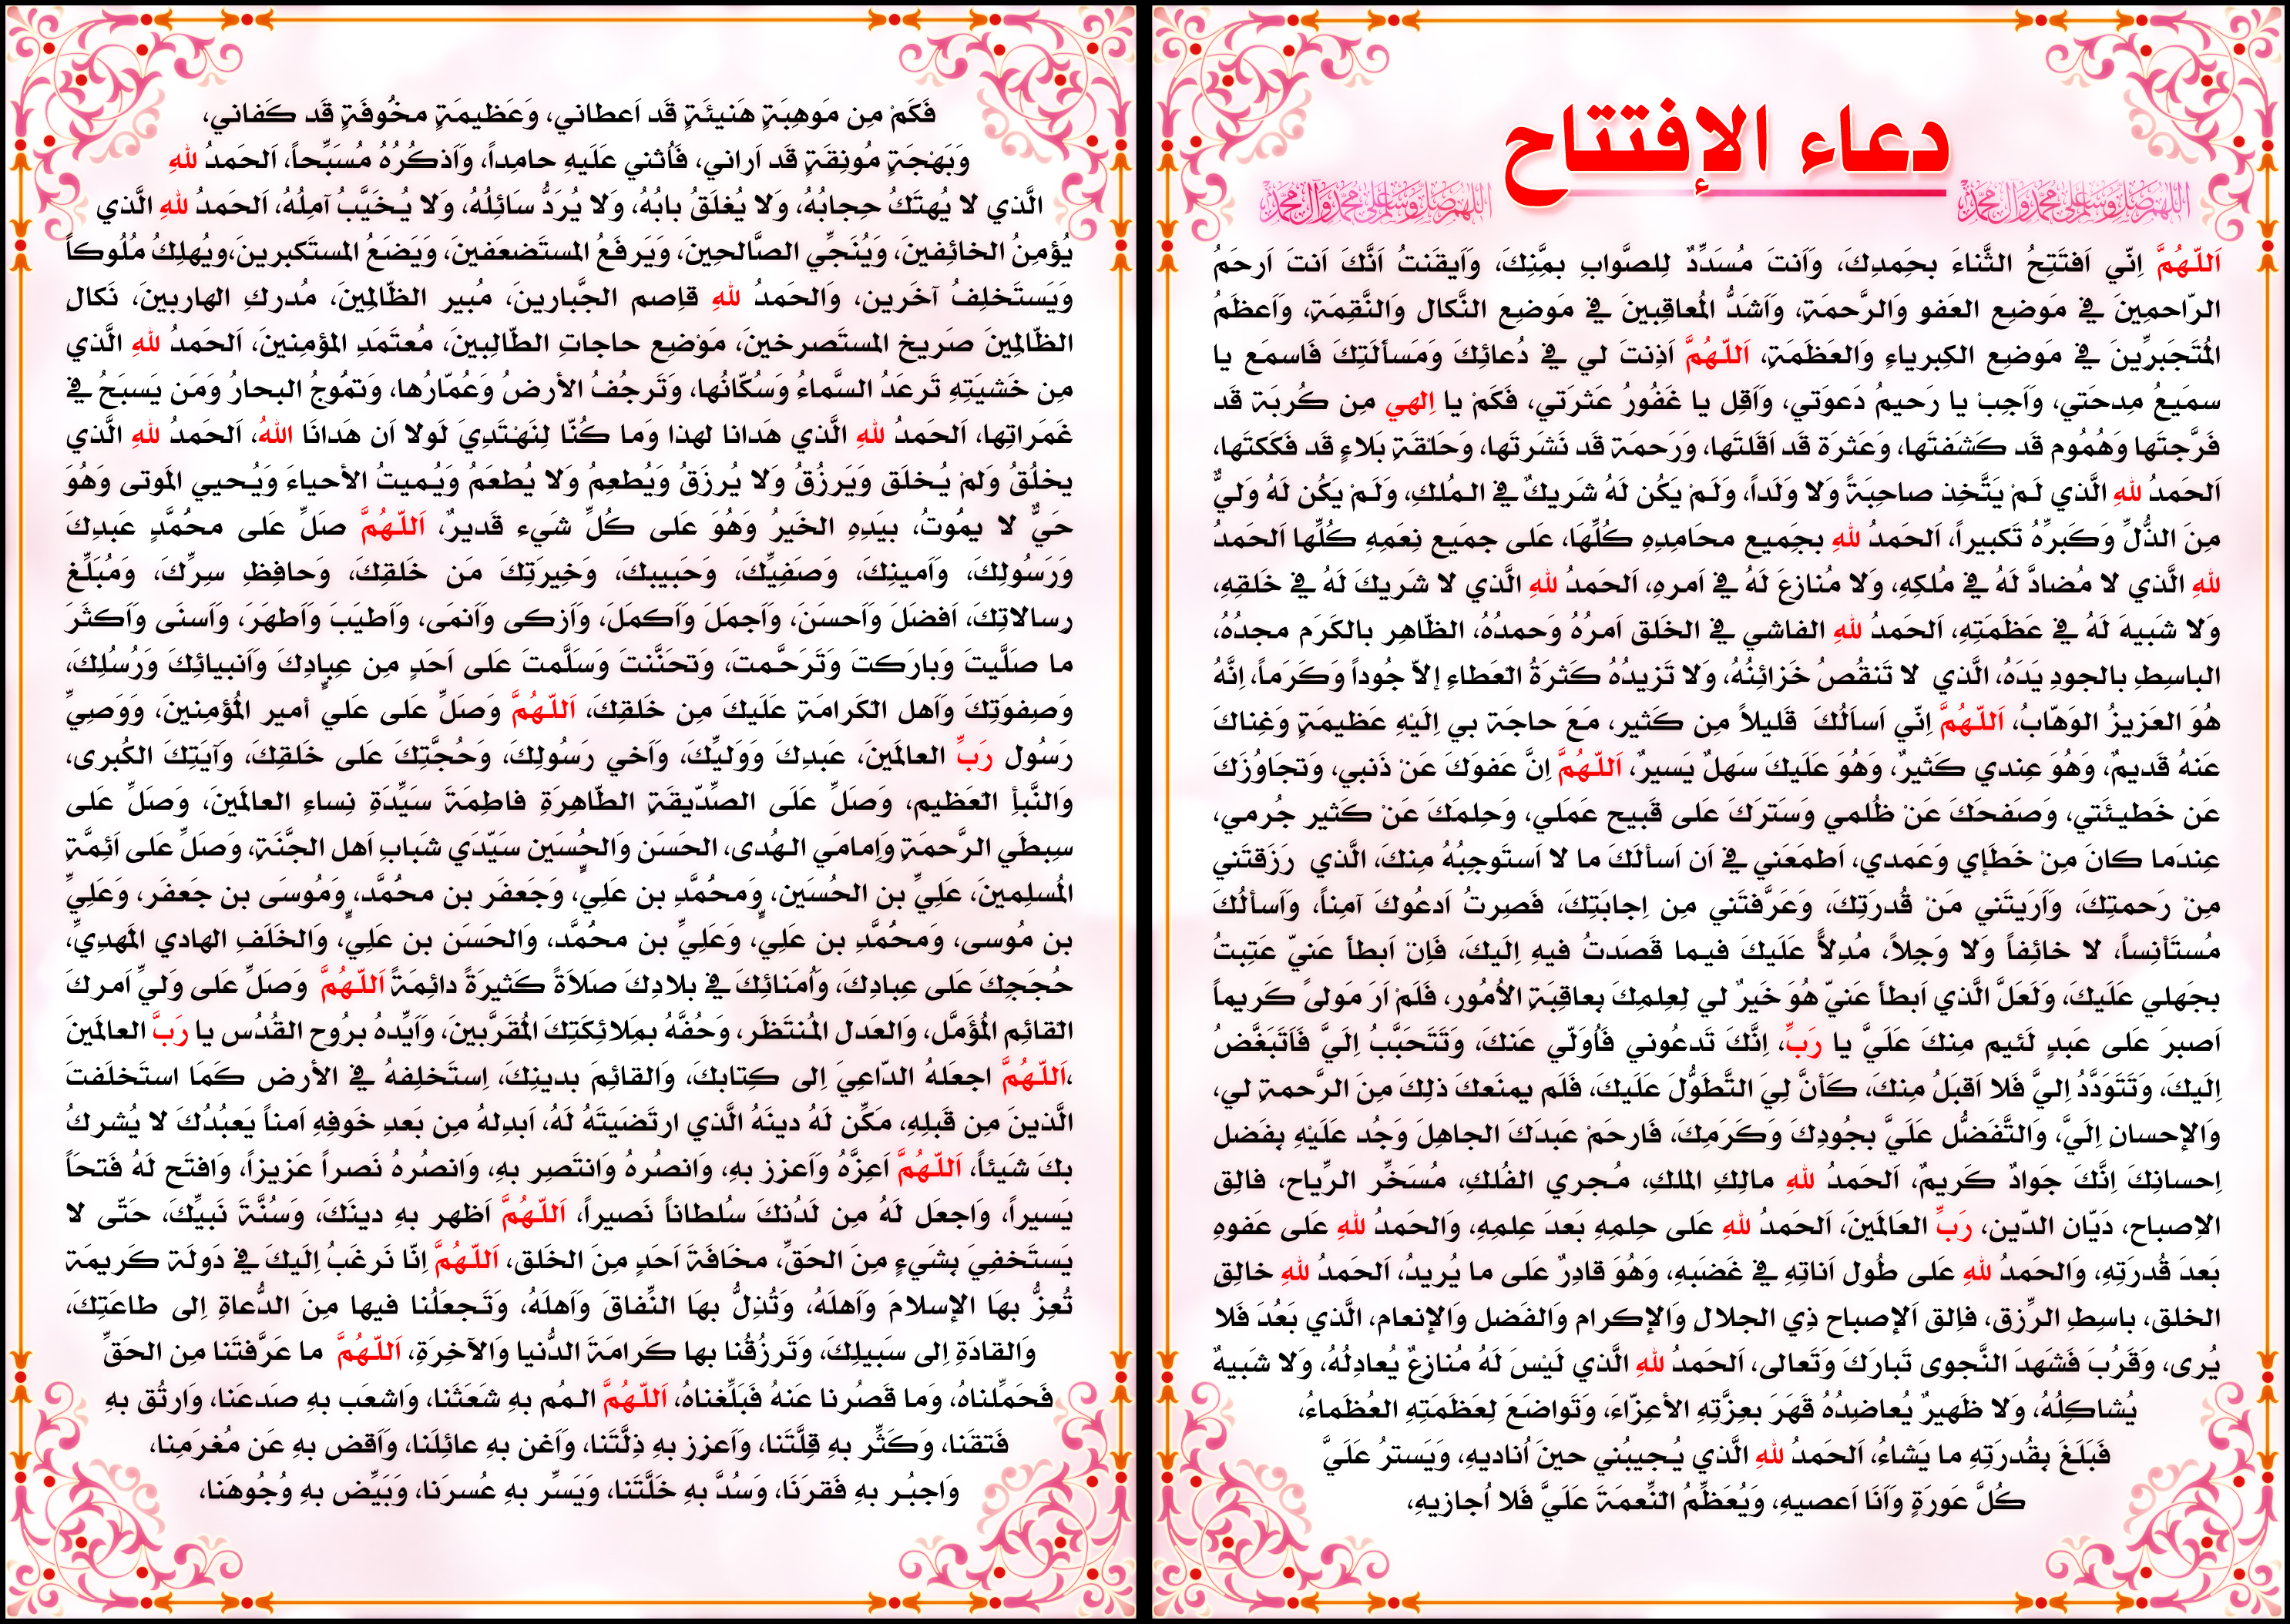 دعاء الإفتتاح
اللهم صل وسلم على محمد وآل محمد
اللهم صل وسلم على محمد وآل محمد
اَللّـهُمَّ اِنّي اَفتَتِحُ الثَّناءَ بِحَمدِكَ، وَاَنتَ مُسَدِّدٌ لِلصَّوابِ بِمَّنِكَ، وَاَيقَنتُ اَنَّكَ اَنتَ اَرحَمُ
الرّاحمِينَ في مَوضِعِ العَفوِ وَالرَّحمَةِ، وَاَشَدُّ المُعاقِبينَ في مَوضِعِ النَّكالِ وَالنَّقِمَةِ، وَاَعظَمُ
المُتَجَبرِّينَ في مَوضِعِ الكِبرياءِ وَالعَظَمَةِ، اَللّـهُمَّ اَذِنتَ لي في دُعائِكَ وَمَسألَتِكَ فَاسمَع يا
سمَيعُ مِدحَتي، وَاَجِبْ يا رَحيمُ دَعوَتي، وَاَقِل يا غَفُورُ عَثرَتي، فَكَمْ يا اِلهي مِن كُربَة قَد
فَرَّجتَها وَهُمُوم قَد كَشَفتَها، وَعَثرَة قَد اَقَلتَها، وَرَحمَة قَد نَشَرتَها، وَحَلقَةِ بَلاءٍ قَد فَكَكتَها،
اَلحَمدُ للهِ الَّذي لَمْ يَتَّخِذ صاحِبَةً وَلا وَلَداً، وَلَمْ يَكُن لَهُ شَريكٌ في الـمُلكِ، وَلَمْ يَكُن لَهُ وَليٌّ
مِنَ الذُّلِّ وَكَبرِّهُ تَكبيراً، اَلحَمدُ للهِ بجَميعِ محَامِدِهِ كُلِّهَا، عَلى جمَيعِ نِعَمِهِ كُلِّها اَلحَمدُ
للهِ الَّذي لا مُضادَّ لَهُ في مُلكِهِ، وَلا مُنازِعَ لَهُ في اَمرِهِ، اَلحَمدُ للهِ الَّذي لا شَريكَ لَهُ في خَلقِهِ،
وَلا شَبيهَ لَهُ في عَظَمَتِهِ، اَلحَمدُ للهِ الفاشي في الخَلقِ اَمرُهُ وَحمدُهُ، الظّاهِرِ بالكَرَمِ مجدُهُ،
الباسِطِ بالجودِ يَدَهُ، الَّذي لا تَنقُصُ خَزائِنُهُ، وَلا تَزيدُهُ كَثرَةُ العَطاءِ إلاّ جُوداً وَكَرَماً، اِنَّهُ
هُوَ العَزيزُ الوَهّابُ، اَللّـهُمَّ اِنّي اَساَلُكَ قَليلاً مِن كَثير، مَعَ حاجَة بي اِلَيْهِ عَظيمَةٍ وَغِناكَ
عَنهُ قَديمٌ، وَهُوَ عِندي كَثيرٌ، وَهُوَ عَلَيكَ سَهلٌ يَسيرٌ، اَللّـهُمَّ اِنَّ عَفوَكَ عَنْ ذَنبي، وَتجَاوُزَكَ
عَن خَطيئَتي، وَصَفحَكَ عَنْ ظُلمي وَسَترَكَ عَلى قَبيحِ عَمَلي، وَحِلمَكَ عَنْ كَثيرِ جُرمي،
عِندَما كانَ مِنْ خَطَإي وَعَمدي، اَطمَعَني في اَن اَسألَكَ ما لا اَستَوجِبُهُ مِنكَ، الَّذي رَزَقتَني
مِنْ رَحمتِكَ، وَاَرَيتَني مَنْ قُدرَتِكَ، وَعَرَّفتَني مِن اِجابَتِكَ، فَصِرتُ اَدعُوكَ آمِناً، وَاَسألُكَ
مُستَأنِساً، لا خائِفاً وَلا وَجِلاً، مُدِلاًّ عَلَيكَ فيـما قَصَدتُ فيهِ اِلَيكَ، فَاِنْ اَبطأ عَنيّ عَتِبتُ
بجَهلي عَلَيكَ، وَلَعَلَّ الَّذي اَبطأ عَنيّ هُوَ خَيرٌ لي لِعِلمِكَ بِعاقِبَةِ الاُمُورِ، فَلَمْ اَرَ مَولىً كَريماً
اَصبرَ عَلى عَبدٍ لَئيمٍ مِنكَ عَلَيَّ يا رَبِّ، اِنَّكَ تَدعُوني فَاُوَلّي عَنكَ، وَتَتَحَبَّبُ اِلَيَّ فَاَتَبَغَّضُ
اِلَيكَ، وَتَتَوَدَّدُ اِليَّ فَلا اَقبَلُ مِنكَ، كَأنَّ لِيَ التَّطَوُّلَ عَلَيكَ، فَلَم يمنَعكَ ذلِكَ مِنَ الرَّحمةِ لي،
وَالإحسانِ اِلَيَّ، وَالتَّفَضُّلِ عَلَيَّ بجُودِكَ وَكَرَمِكَ، فَارحَمْ عَبدَكَ الجاهِلَ وَجُد عَلَيْهِ بِفَضلِ
اِحسانِكَ اِنَّكَ جَوادٌ كَريمٌ، اَلحَمدُ للهِ مالِكِ الملكِ، مُـجري الفُلكِ، مُسَخِّرِ الرِّياحِ، فالِقِ
الاِصباحِ، دَيّانِ الدّينِ، رَبِّ العَالَمينَ، اَلحَمدُ للهِ عَلى حِلمِهِ بَعدَ عِلمِهِ، وَالحَمدُ للهِ عَلى عَفوِهِ
بَعدَ قُدرَتِهِ، وَالحَمدُ للهِ عَلى طُولِ اَناتِهِ في غَضَبهِ، وَهُوَ قادِرٌ عَلى ما يُريدُ، اَلحَمدُ للهِ خالِقِ
الخلقِ، باسِطِ الرِّزقِ، فاِلقِ اَلإصباحِ ذِي الجلالِ وَالإكرامِ وَالفَضلِ وَالإنعامِ، الَّذي بَعُدَ فَلا
يُرى، وَقَرُبَ فَشَهدَ النَّجوى تَبارَكَ وَتَعالى، اَلحَمدُ للهِ الَّذي لَيْسَ لَهُ مُنازعٌ يُعادِلُهُ، وَلا شَبيهٌ
يُشاكِلُهُ، وَلا ظَهيرٌ يُعاضِدُهُ قَهَرَ بعِزَّتِهِ الأعِزّاءَ، وَتَواضَعَ لِعَظَمَتِهِ العُظَماءُ،
فَبَلَغَ بِقُدرَتِهِ ما يَشاءُ، اَلحَمدُ للهِ الَّذي يُـجيبُني حينَ اُناديهِ، وَيَسترُ عَلَيَّ
كُلَّ عَورَةٍ وَاَنَا اَعصيهِ، وَيُعَظِّمُ النِّعمَةَ عَلَيَّ فَلا اُجازيهِ،
فَكَمْ مِن مَوهِبَةٍ هَنيئَةٍ قَد اَعطاني، وَعَظيمَةٍ مخُوفَةٍ قَد كَفاني،
وَبَهْجَةٍ مُونِقَةٍ قَد اَراني، فَاُثني عَلَيهِ حامِداً، وَاَذكُرُهُ مُسَبِّحاً، اَلحَمدُ للهِ
الَّذي لا يُهتَكُ حِجابُهُ، وَلا يُغلَقُ بابُهُ، وَلا يُرَدُّ سَائِلُهُ، وَلا يُـخَيَّبُ آمِلُهُ، اَلحَمدُ للهِ الَّذي
يُؤمِنُ الخائِفينَ، وَيُنَجِّي الصَّالحِينَ، وَيَرفَعُ المستَضعَفينَ، وَيَضَعُ المستَكبرينَ،ويُهلِكُ مُلُوكاً
وَيَستَخلِفُ آخَرين، وَالحَمدُ للهِ قاِصمِ الجَّبارينَ، مُبيرِ الظّالِمينَ، مُدركِ الهاربينَ، نَكالِ
الظّالِمِينَ صَريخِ المستَصرخينَ، مَوْضِعِ حاجاتِ الطّالِبينَ، مُعتَمَدِ المؤمِنينَ، اَلحَمدُ للهِ الَّذي
مِن خَشيَتِهِ تَرعَدُ السَّماءُ وَسُكّانُها، وَتَرجُفُ الأرضُ وَعُمّارُها، وَتمُوجُ البحارُ وَمَن يَسبَحُ في
غَمَراتِها، اَلحَمدُ للهِ الَّذي هَدانا لهذا وَما كُنّا لِنَهْتَدِيَ لَولا اَن هَدانَا اللهُ، اَلحَمدُ للهِ الَّذي
يخلُقُ وَلمْ يُـخلَق وَيَرزُقُ وَلا يُرزَقُ وَيُطعِمُ وَلا يُطعَمُ وَيُـميتُ الأحياءَ وَيُـحيي المَوتى وَهُوَ
حَيٌّ لا يمُوتُ، بيَدِهِ الخَيرُ وَهُوَ عَلى كُلِّ شَيء قَديرٌ، اَللّـهُمَّ صَلِّ عَلى محُمَّدٍ عَبدِكَ
وَرَسُولِكَ، وَاَمينِكَ، وَصَفِيِّكَ، وَحَبيبكَ، وَخِيرَتِكَ مَن خَلقِكَ، وَحافِظِ سِرِّكَ، وَمُبَلِّغِ
رسالاتِكَ، اَفضَلَ وَاَحسَنَ، وَاَجمَلَ وَاَكمَلَ، وَاَزكى وَاَنمَى، وَاَطيَبَ وَاَطهَرَ، وَاَسنَى وَاَكثَرَ
ما صَلَّيتَ وَبارَكتَ وَتَرَحَّمتَ، وَتحَنَّنتَ وَسَلَّمتَ عَلى اَحَدٍ مِن عِبادِكَ وَاَنبيائِكَ وَرُسُلِكَ،
وَصِفوَتِكَ وَاَهلِ الكَرامَةِ عَلَيكَ مِن خَلقِكَ، اَللّـهُمَّ وَصَلِّ عَلى عَليٍ أميرِ المُؤمِنينَ، وَوَصِيِّ
رَسُولِ رَبِّ العالَمينَ، عَبدِكَ وَوَليِّكَ، وَاَخي رَسُولِكَ، وَحُجَّتِكَ عَلى خَلقِكَ، وَآيَتِكَ الكُبرى،
وَالنَّبأِ العَظيمِ، وَصَلِّ عَلَى الصِّدّيقَةِ الطّاهِرَةِ فاطِمَةَ سَيِّدَةِ نِساءِ العالَمينَ، وَصَلِّ عَلى
سِبطَيِ الرَّحمَةِ وَاِمامَي الـهُدى، الحَسَنِ وَالحُسَينِ سَيّدَي شَبابِ اَهلِ الجَنَّةِ، وَصَلِّ عَلى اَئِمَّةِ
المُسلِمينَ، عَلِيِّ بن الحُسَينِ، وَمحُمَّدِ بن عَلِيٍ، وَجَعفَرِ بن محُمَّد، وَمُوسَى بن جَعفَر، وَعَلِيِّ
بن مُوسى، وَمحُمَّدِ بن عَلِيٍ، وَعَلِيِّ بن محُمَّد، وَالحَسَنِ بن عَلِي، وَالخَلَفِ الهادي المَهدِيِّ،
حُجَجِكَ عَلى عِبادِكَ، وَاُمَنائِكَ في بلادِكَ صَلاَةً كَثيرَةً دائِمَةً اَللّـهُمَّ وَصَلِّ عَلى وَليِّ اَمركَ
القائِمِ المُؤَمَّلِ، وَالعَدلِ المُنتَظَرِ، وَحُفَّهُ بمَلائِكَتِكَ المُقَرَّبينَ، وَاَيِّدهُ بروُحِ القُدُسِ يا رَبَّ العالَمينَ
،اَللّـهُمَّ اجعَلهُ الدّاعِيَ اِلى كِتابكَ، وَالقائِمَ بدينِكَ، اِستَخلِفهُ في الأرضِ كَمَا استَخلَفتَ
الَّذينَ مِن قَبلِهِ، مَكِّن لَهُ دينَهُ الَّذي ارتَضَيتَهُ لَهُ، اَبدِلهُ مِن بَعدِ خَوفِهِ اَمناً يَعبُدُكَ لا يُشركُ
بكَ شَيئاً، اَللّـهُمَّ اَعِزَّهُ وَاَعزز بهِ، وَانصُرهُ وَانتَصِر بهِ، وَانصُرهُ نَصراً عَزيزاً، وَافتَح لَهُ فَتحَاً
يَسيراً، وَاجعَل لَهُ مِن لَدُنكَ سُلطاناً نَصيراً، اَللّـهُمَّ اَظهر بهِ دينَكَ، وَسُنَّةَ نَبيِّكَ، حَتّى لا
يَستَخفِيَ بِشَيءٍ مِنَ الحَقِّ، مخَافَةَ اَحَدٍ مِنَ الخَلقِ، اَللّـهُمَّ اِنّا نَرغَبُ اِلَيكَ في دَولَة كَريمَة
تُعِزُّ بهَا الإسلامَ وَاَهلَهُ، وَتُذِلُّ بهَا النِّفاقَ وَاَهلَهُ، وَتَـجعَلُنا فيها مِنَ الدُّعاةِ اِلى طاعَتِكَ،
وَالقادَةِ اِلى سَبيلِكَ، وَتَرزُقُنا بها كَرامَةَ الدُّنيا وَالآخِرَةِ، اَللّـهُمَّ ما عَرَّفتَنا مِن الحَقِّ
فَحَمِّلناهُ، وَما قَصُرنا عَنهُ فَبَلِّغناهُ، اَللّـهُمَّ الـمُم بهِ شَعَثَنا، وَاشعَب بهِ صَدعَنا، وَارتُق بهِ
فَتقَنا، وَكَثِّر بهِ قِلَّتَنا، وَاَعزز بهِ ذِلَّتَنا، وَاَغنِ بهِ عائِلَنا، وَاَقضِ بهِ عَن مُغرَمِنا،
وَاجبُـر بهِ فَقرَنَا، وَسُدَّ بهِ خَلَّتَنا، وَيَسِّر بهِ عُسرَنا، وَبَيِّض بهِ وُجُوهَنا،